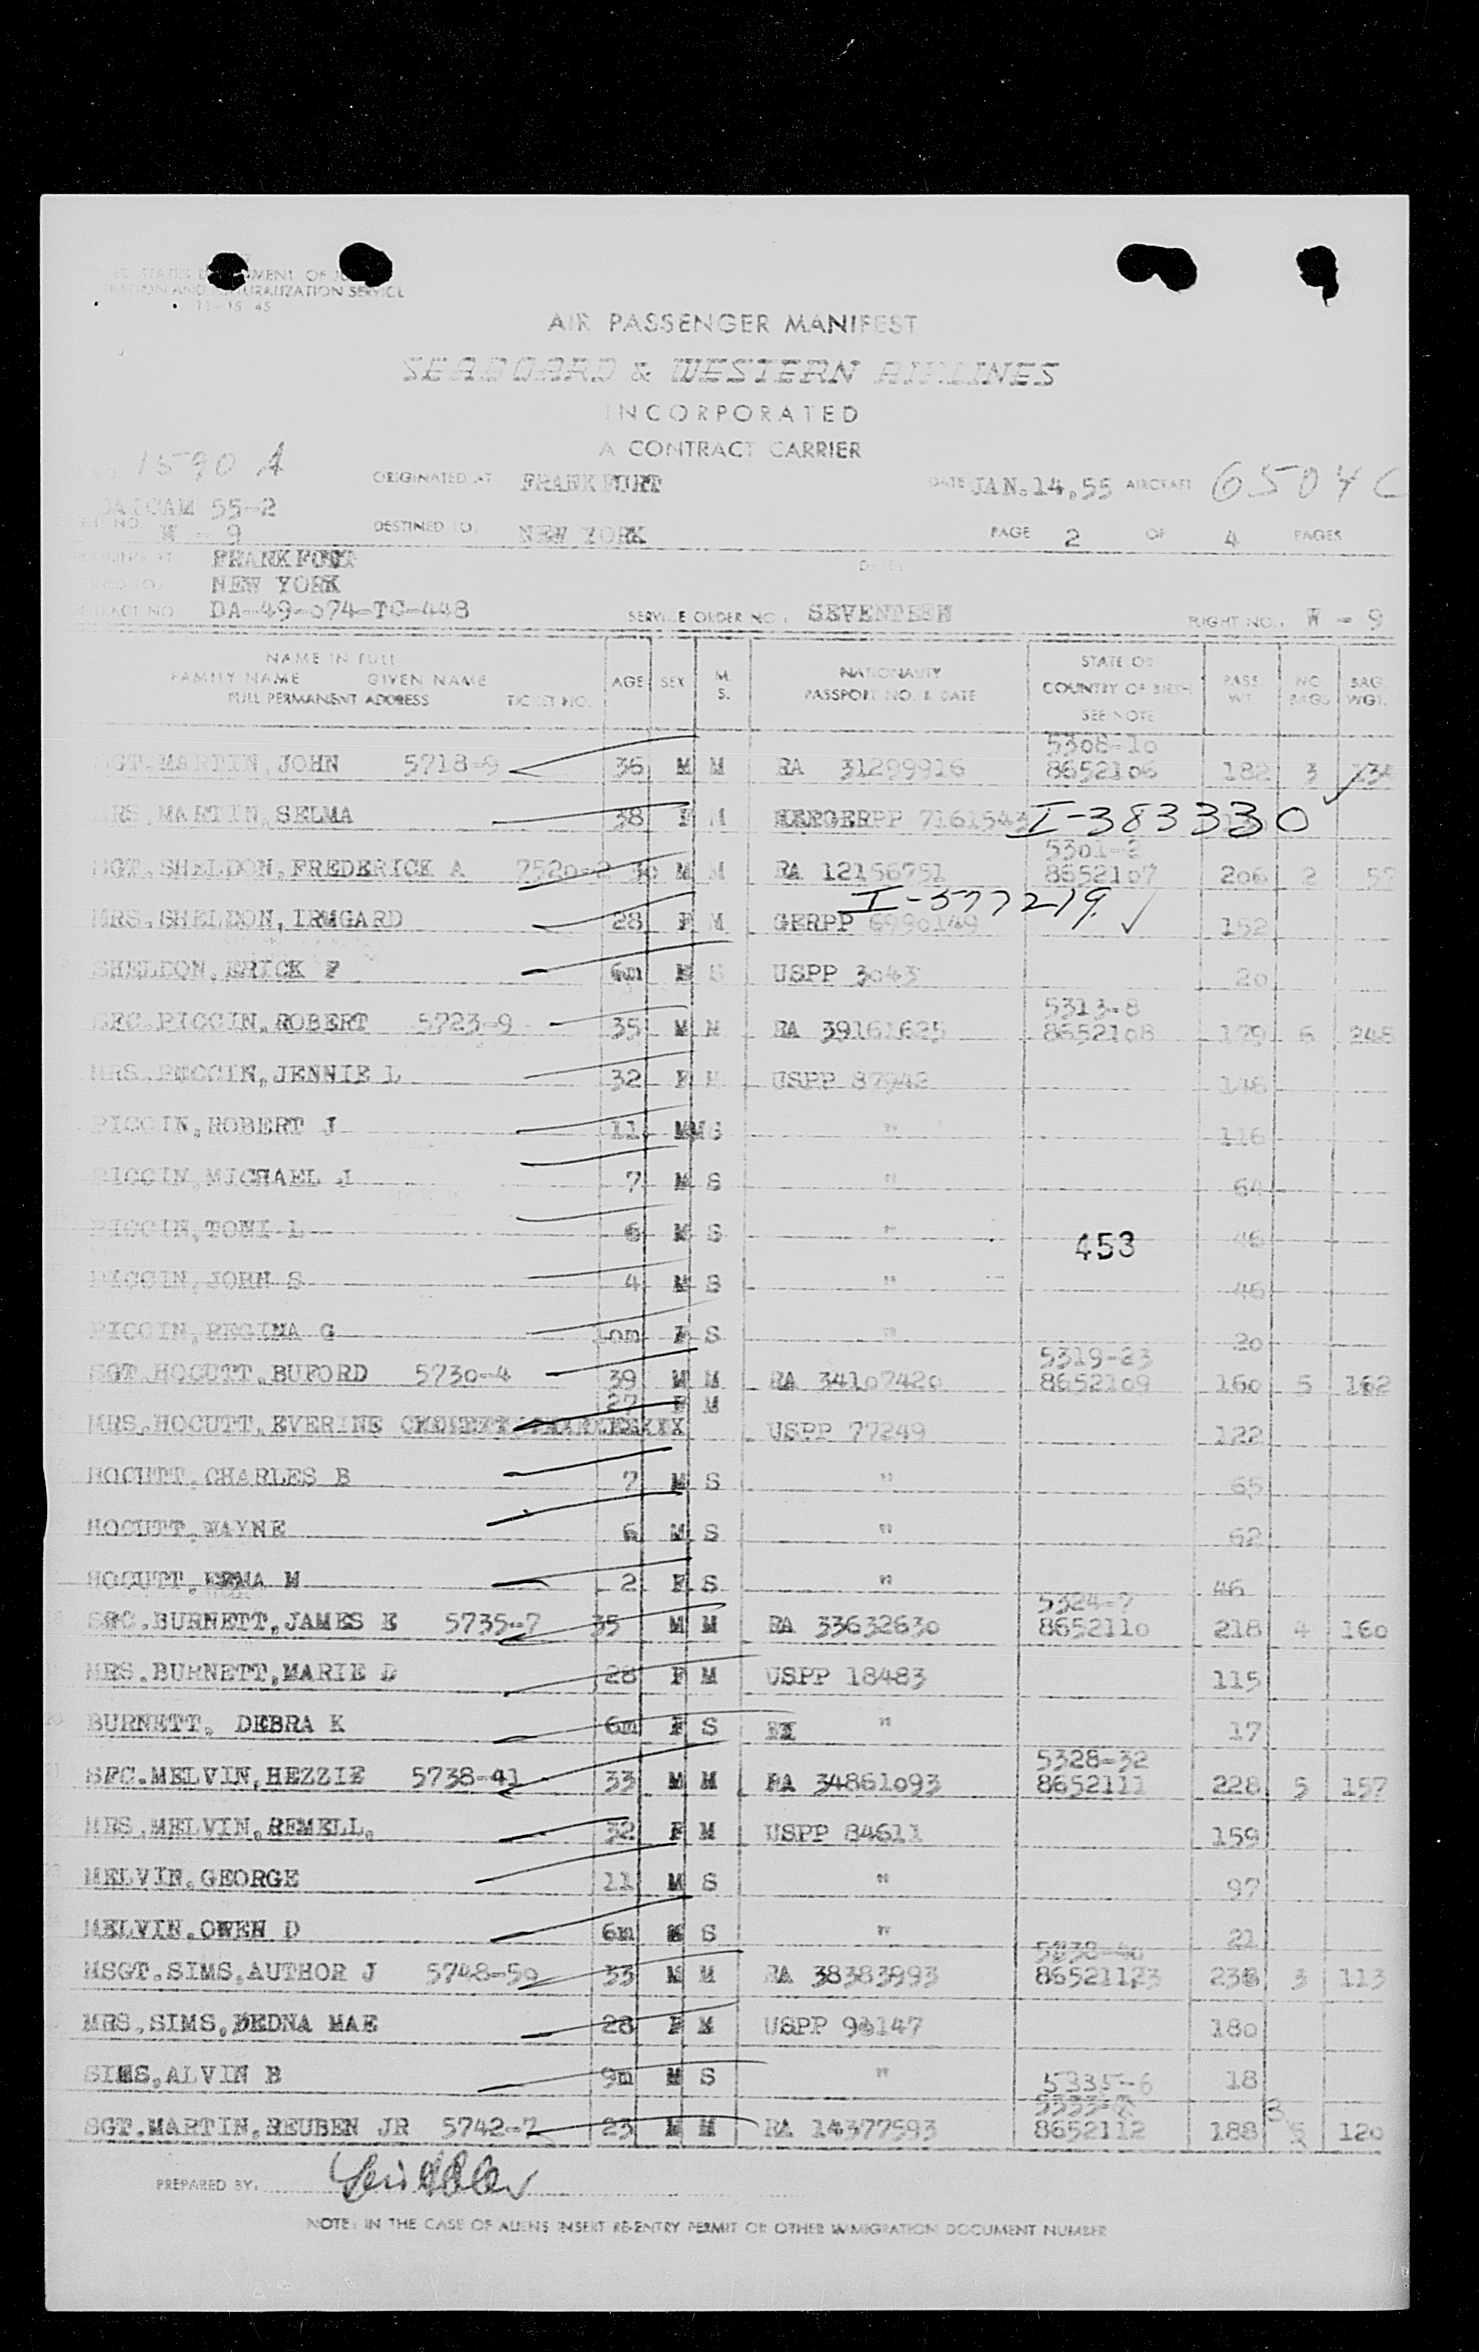 STATES DEPARTMENT OF
AND NATURALIZATION SERVICE
AIR PASSENGER MANIFEST
SEABOARD & WESTERN AIRLINES
INCORPORATED
A CONTRACT CARRIER
1590 A ORIGINATED AT FRANKFURT DATE JAN.14,55 AIRCRAFT 6504 C
55-2
NO. W - 9 DESTINED TO: NEW YORK PAGE 2 OF 4 PAGES
FRANKFURT
NEW YORK
NO. DA-49-074-TC-448 SERVICE ORDER NO.: SEVENTEEN FLIGHT NO.: W - 9
NAME IN FULL
FAMILY NAME GIVEN NAME
FULL PERMANENT ADDRESS TICKET NO. AGE SEX M. S. NATIONALITY PASSPORT NO. & DATE STATE OR COUNTRY OF BIRTH SEE NOTE PASS WT. NO. BAGS BAG WGT.
5308-10
SGT.MARTIN,JOHN 5718-9 36 M M RA 31299916 8652106 182 3
MRS.MARTIN,SELMA 38 F M 7161543 I-383330
5301-2
SGT.SHELDON,FREDERICK A 7520-2 30 M M RA 12156751 8652107 206 2
I-577219
MRS.SHELDON,IRMGARD 28 F M GERPP 6990149 152
SHELDON,ERICK F 6m M S USPP 3043 20
5313-8
SFC.PICCIN,ROBERT 5723-9 35 M M RA 39161625 8652108 179 6 248
MRS.PICCIN,JENNIE L 32 F M USPP 87942 146
PICCIN,ROBERT J 11 M S " 116
PICCIN,MICHAEL J 7 M S " 64
PICCIN,TOMI L 6 M S " 46
453
PICCIN,JOHN S 4 M S " 46
PICCIN,REGINA G 10m F S " 20
5319-23
SGT.HOCUTT,BUFORD 5730-4 39 M M RA 34107420 8652109 160 5 162
27 F M
MRS.HOCUTT,EVERINE USPP 77249 122
HOCUTT,CHARLES B 7 M S " 65
HOCUTT,WAYNE 6 M S " 62
HOCUTT, M 2 F S " 46
5324-7
SFC.BURNETT,JAMES E 5735-7 35 M M RA 33632630 8652110 218 4 160
MRS.BURNETT,MARIE D 28 F M USPP 18483 115
BURNETT, DEBRA K 6m F S " 17
5328-32
SFC.MELVIN,HEZZIE 5738-41 33 M M RA 34861093 8652111 228 5 157
MRS.MELVIN,REMELL, 32 F M USPP 84611 159
MELVIN,GEORGE 11 M S " 97
MELVIN,OWEN D 6m M S " 21
MSGT.SIMS,AUTHOR J 5748-50 33 M M RA 38383993 3 113
MRS.SIMS,EDNA MAE 28 F M USPP 180
SIMS,ALVIN B 9m M S " 18
5335-6
SGT.MARTIN,REUBEN JR 5742-7 23 M M RA 14377593 8652112 188 3 120
PREPARED BY:
NOTE: IN THE CASE OF ALIENS INSERT RE-ENTRY PERMIT OR OTHER IMMIGRATION DOCUMENT NUMBER